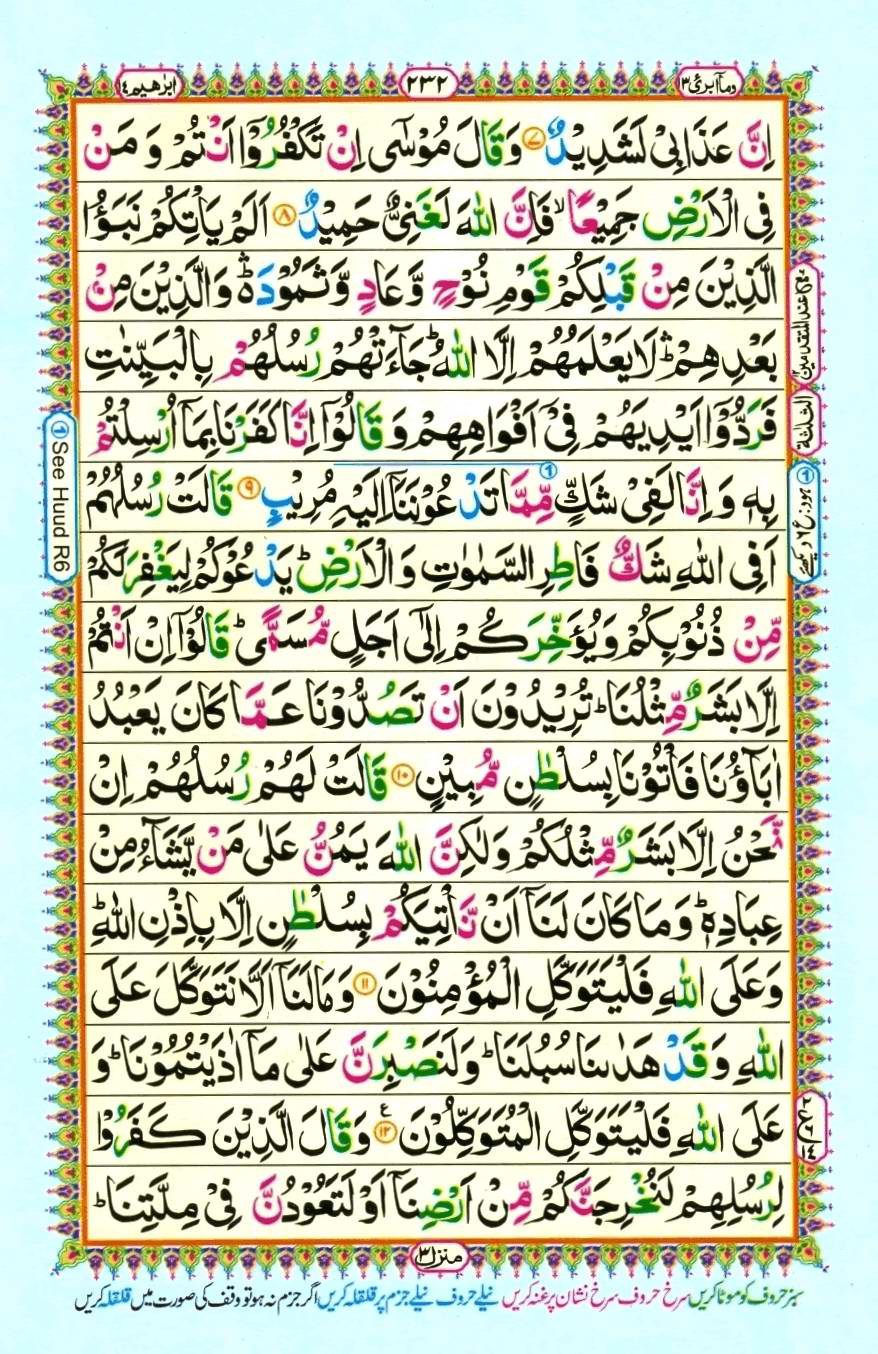 ابرٰهيم ١٤
٢٣٢
وما ابرئ ١٣
اِنَّ عَذَابِیْ لَشَدِیْدٌ ۷ وَقَالَ مُوْسٰۤی اِنْ تَكْفُرُوْۤا اَنْتُمْ وَ مَنْ
فِی الْاَرْضِ جَمِیْعًا ۙ فَاِنَّ اللّٰهَ لَغَنِیٌّ حَمِیْدٌ ۸ اَلَمْ یَاْتِكُمْ نَبَؤُا
الَّذِیْنَ مِنْ قَبْلِكُمْ قَوْمِ نُوْحٍ وَّعَادٍ وَّثَمُوْدَ ۛؕ وَالَّذِیْنَ مِنْۢ
بَعْدِهِمْ ۛؕ لَا یَعْلَمُهُمْ اِلَّا اللّٰهُ ؕ جَآءَتْهُمْ رُسُلُهُمْ بِالْبَیِّنٰتِ
فَرَدُّوْۤا اَیْدِیَهُمْ فِیْۤ اَفْوَاهِهِمْ وَ قَالُوْۤا اِنَّا كَفَرْنَا بِمَاۤ اُرْسِلْتُمْ
بِهٖ وَ اِنَّا لَفِیْ شَكٍّ مِّمَّا تَدْعُوْنَنَاۤ اِلَیْهِ مُرِیْبٍ ۹ قَالَتْ رُسُلُهُمْ
اَفِی اللّٰهِ شَكٌّ فَاطِرِ السَّمٰوٰتِ وَ الْاَرْضِ ؕ یَدْعُوْكُمْ لِیَغْفِرَ لَكُمْ
مِّنْ ذُنُوْبِكُمْ وَ یُؤَخِّرَكُمْ اِلٰۤی اَجَلٍ مُّسَمًّی ؕ قَالُوْۤا اِنْ اَنْتُمْ
اِلَّا بَشَرٌ مِّثْلُنَا ؕ تُرِیْدُوْنَ اَنْ تَصُدُّوْنَا عَمَّا كَانَ یَعْبُدُ
اٰبَآؤُنَا فَاْتُوْنَا بِسُلْطٰنٍ مُّبِیْنٍ ۱۰ قَالَتْ لَهُمْ رُسُلُهُمْ اِنْ
نَّحْنُ اِلَّا بَشَرٌ مِّثْلُكُمْ وَ لٰكِنَّ اللّٰهَ یَمُنُّ عَلٰی مَنْ یَّشَآءُ مِنْ
عِبَادِهٖ ؕ وَ مَا كَانَ لَنَاۤ اَنْ نَّاْتِیَكُمْ بِسُلْطٰنٍ اِلَّا بِاِذْنِ اللّٰهِ ؕ
وَعَلَی اللّٰهِ فَلْیَتَوَكَّلِ الْمُؤْمِنُوْنَ ۱۱ وَ مَا لَنَاۤ اَلَّا نَتَوَكَّلَ عَلَی
اللّٰهِ وَ قَدْ هَدٰىنَا سُبُلَنَا ؕ وَ لَنَصْبِرَنَّ عَلٰی مَاۤ اٰذَیْتُمُوْنَا ؕ وَ
عَلَی اللّٰهِ فَلْیَتَوَكَّلِ الْمُتَوَكِّلُوْنَ ۱۲ ع وَقَالَ الَّذِیْنَ كَفَرُوْا
لِرُسُلِهِمْ لَنُخْرِجَنَّكُمْ مِّنْ اَرْضِنَاۤ اَوْ لَتَعُوْدُنَّ فِیْ مِلَّتِنَا ؕ
منزل ٣
سبز حروف کو موٹا کریں سرخ حروف سرخ نشان پر غنہ کریں نیلے حروف نیلے جزم پر قلقلہ کریں اگر جزم نہ ہو تو وقف کی صورت میں قلقلہ کریں
① See Huud R6
مع عند المتقدمین ۱۲
الثلثة
① ہود : ع ٦ دیکھئے